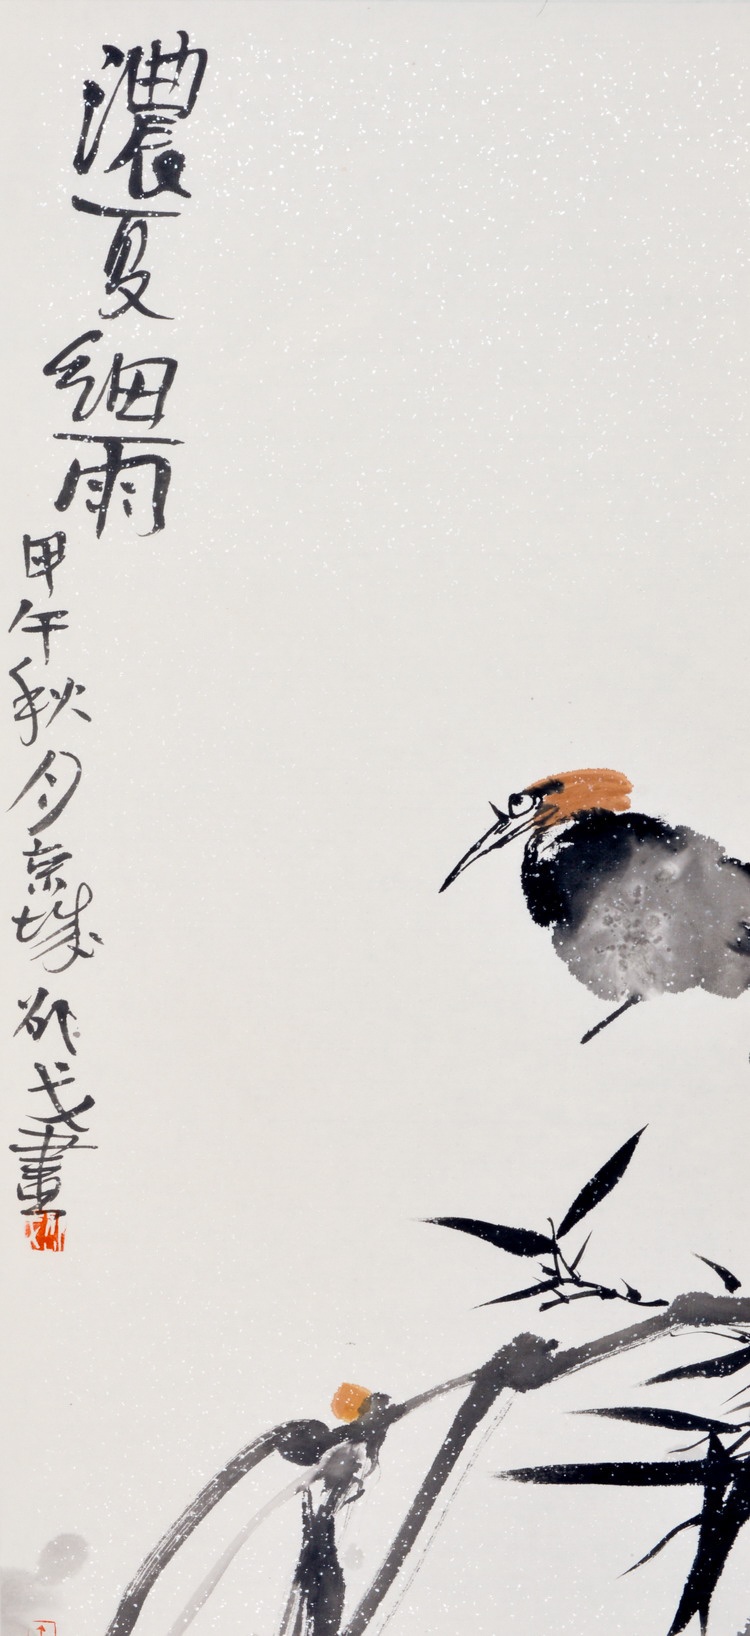 濃夏細雨
甲午秋月京城 戈畫